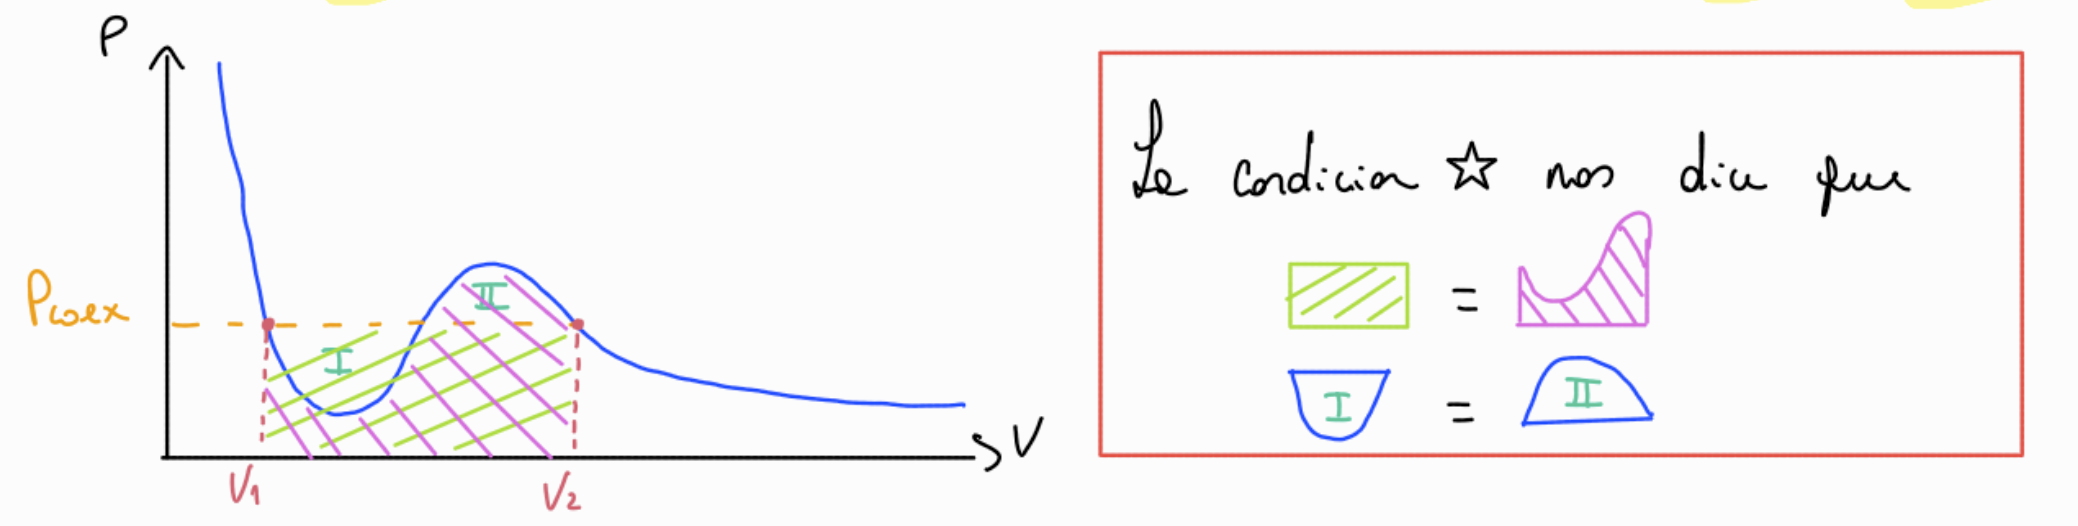 P
P coex
I
II
V
V1
V2
La condicion ☆ nos dice que
=
I = II